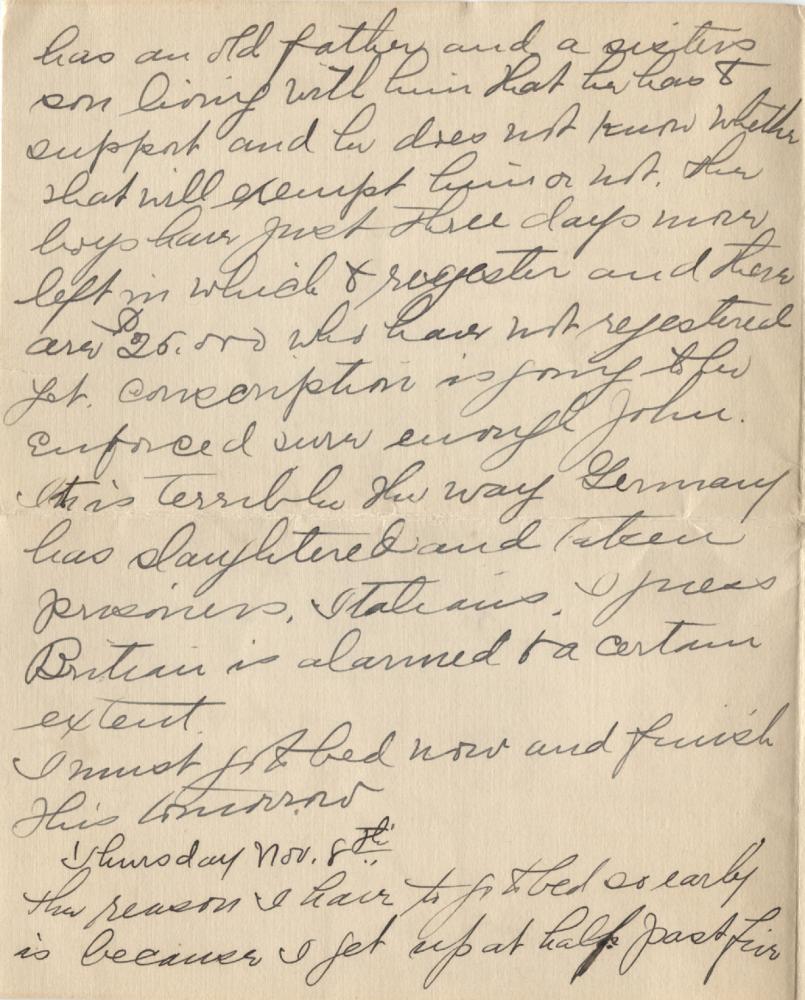 has an old father and a sisters
son living with him that he has to
support and he does not know whether
that will exempt him or not. The
boys have just three days more
left in which to regester and there
are 25.000 who have not rejestered
yet. conscription is going to be
enforced sure enough John.
It is terrible the way Germany
has slaughtered and taken
prisoners, Italians. I guess
Britian is alarmed to a certain
extent.
I must go to bed now and finish
this tomorrow
Thursday Nov. 8th
the reason I have to go to bed so early
is because I get up at half past five